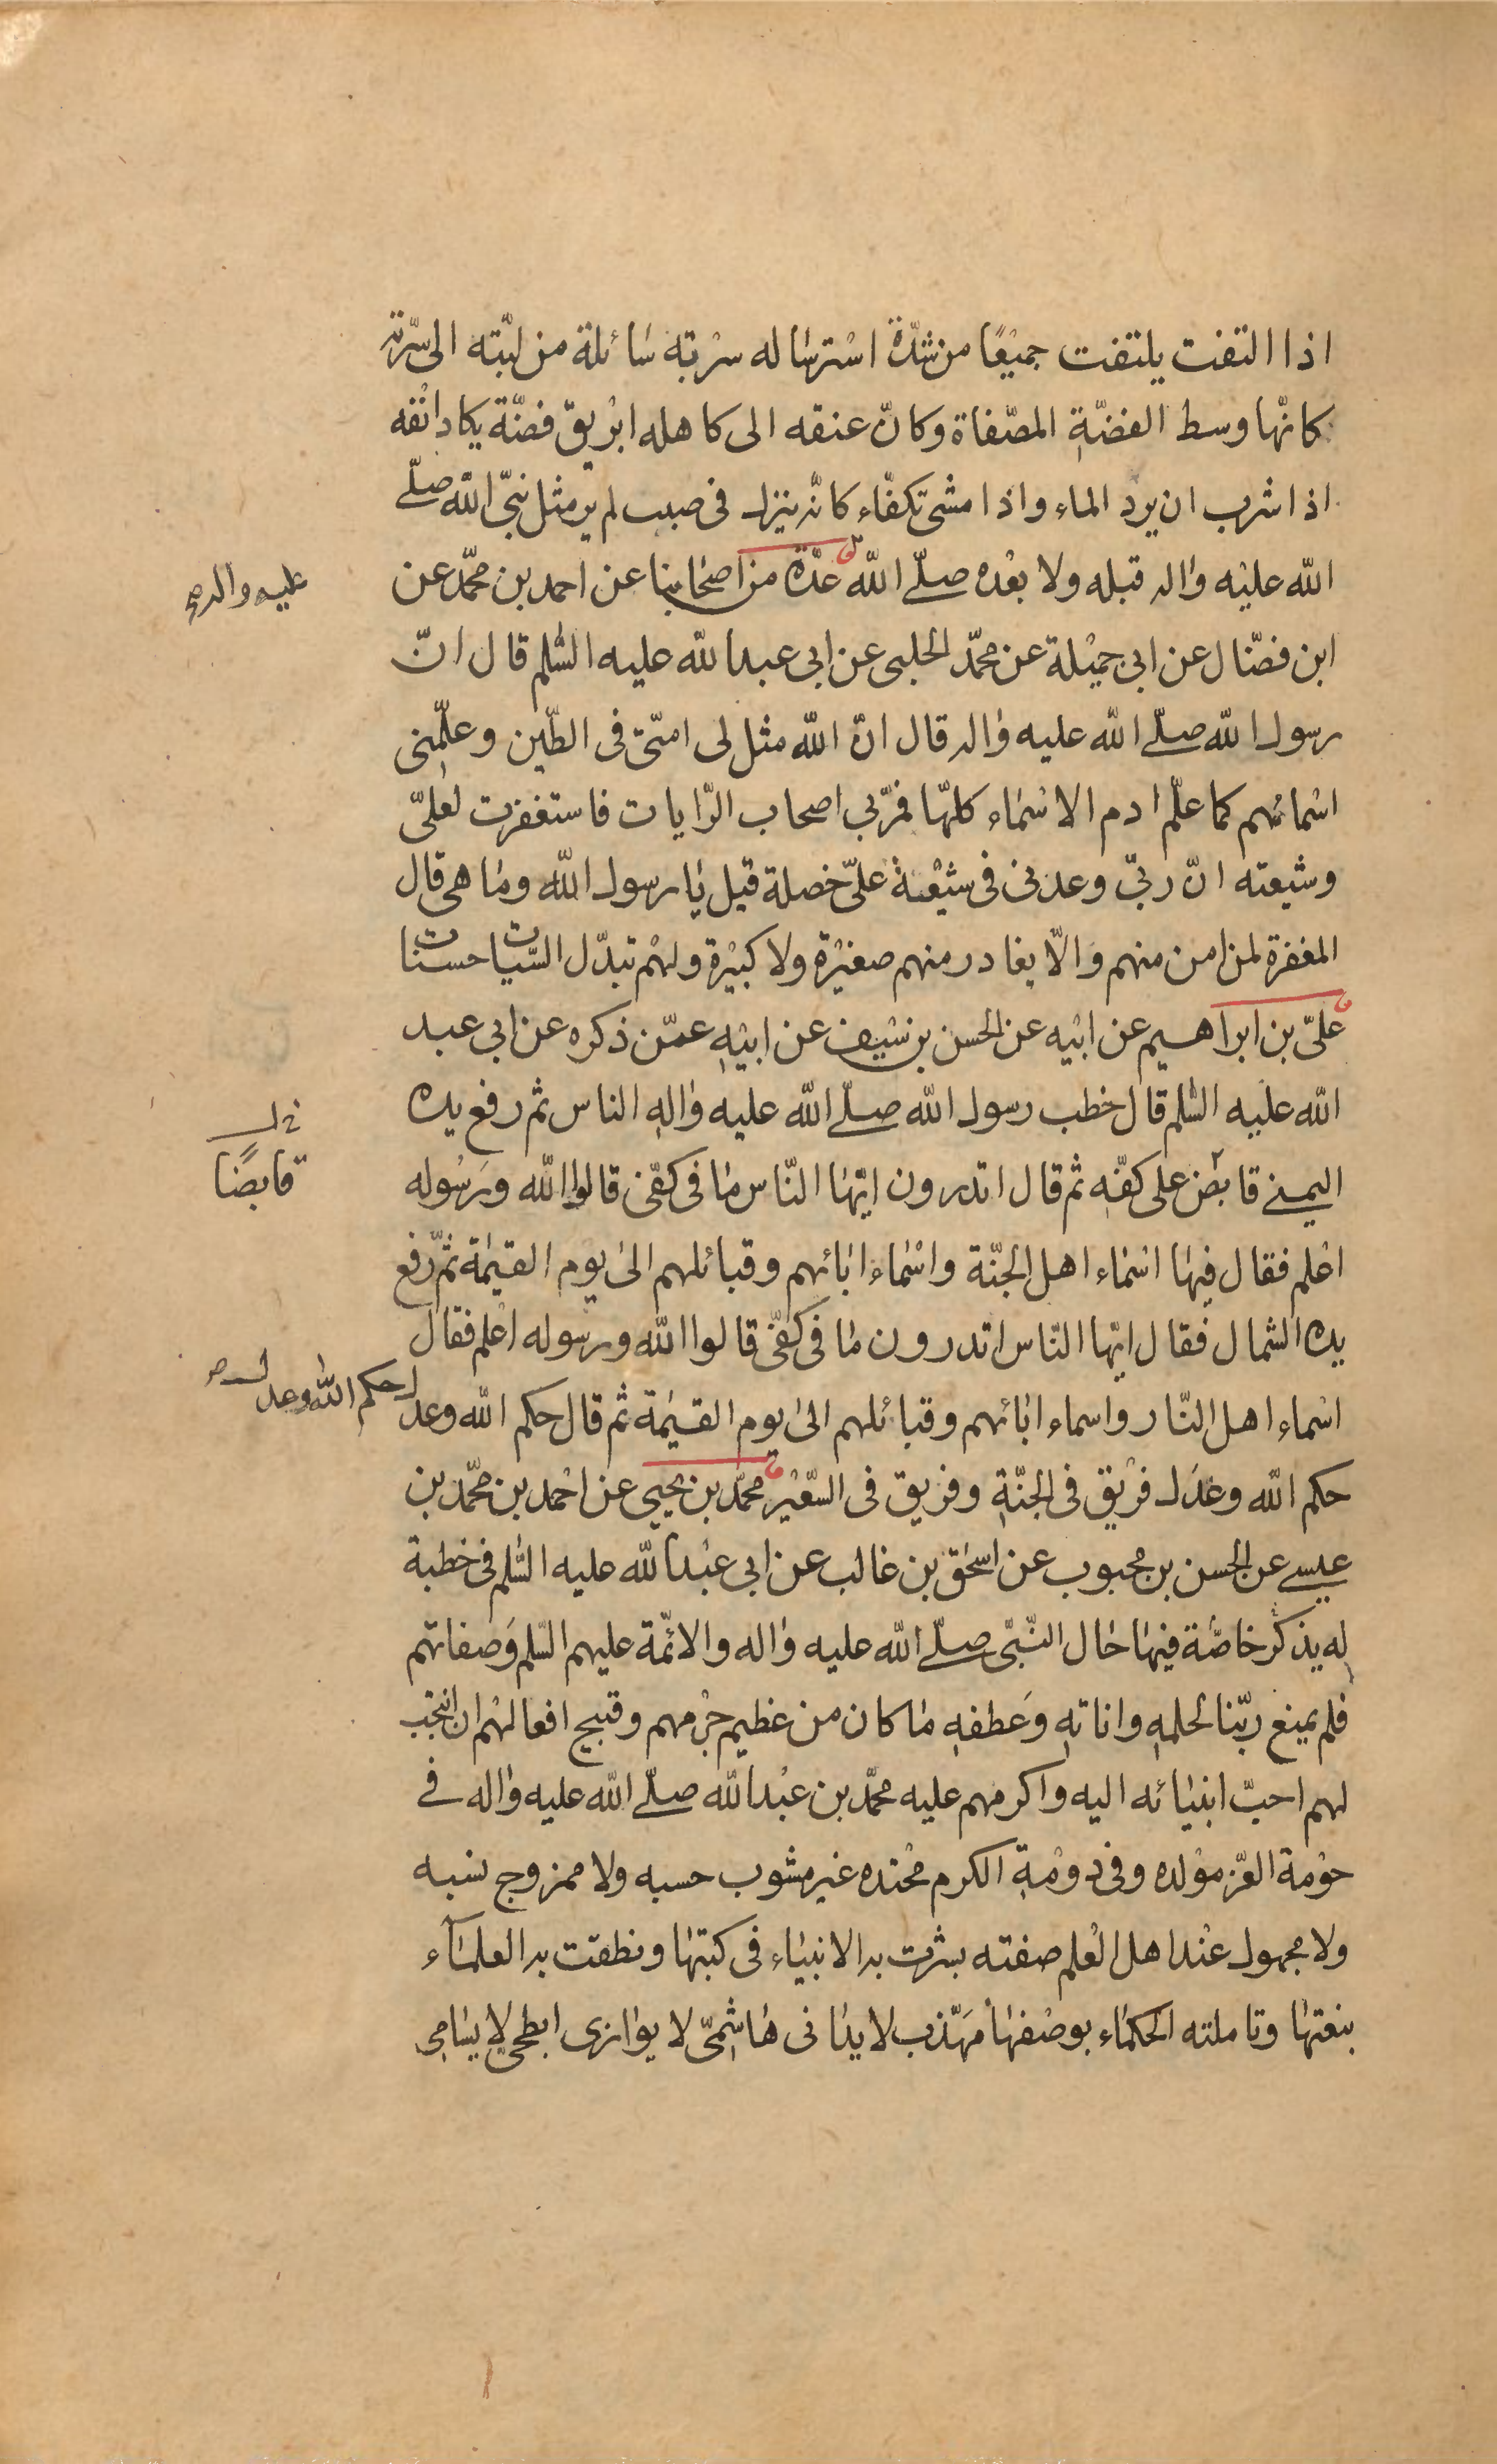 اذا التفت يلتفت جميعًا من شدّة استرساله سربته سائلة من لبّته الى سرّته
كانّها وسط الفضّة المصفّاة وكانّ عنقه الى كاهله ابريق فضّة يكاد انفه
اذا شرب ان يرد الماء واذا مشى تكفّاء كانّه ينزل فى صبب لم ير مثل نبىّ الله صلّى
الله عليه واله قبله ولا بعده صلّى الله عدّة من اصحابنا عن احمد بن محمّد عن
عليه واله صح
ابن فضّال عن ابى جميلة عن محمّد الحلبى عن ابى عبد الله عليه السّلم قال انّ
رسول الله صلّى الله عليه واله قال انّ الله مثل لى امّتى فى الطّين وعلّمنى
اسمائهم كما علّم ادم الاسماء كلّها فمرّ بى اصحاب الرّايات فاستغفرت لعلىّ
وشيعته انّ ربّى وعدنى فى شيعة علىّ خصلة قيل يا رسول الله وما هى قال
المغفرة لمن امن منهم والّا يغادر منهم صغيرة ولا كبيرة ولهم تبدّل السّيات حسنات
علىّ بن ابراهيم عن ابيه عن الحسن بن سيف عن ابيه عمّن ذكره عن ابى عبد
الله عليه السّلم قال خطب رسول الله صلّى الله عليه واله الناس ثم رفع يده
اليمنى قابض على كفّه ثم قال اتدرون ايّها النّاس ما فى كفّى قالوا الله ورسوله
خ ل
قابضًا
اعلم فقال فيها اسماء اهل الجنّة واسماء ابائهم وقبائلهم الى يوم القيمة ثمّ رفع
يده الشمال فقال ايّها النّاس اتدرون ما فى كفّى قالوا الله ورسوله اعلم فقال
اسماء اهل النّار واسماء ابائهم وقبائلهم الى يوم القيمة ثم قال حكم الله وعدل
حكم الله وعدل صح
حكم الله وعدل فريق فى الجنّة وفريق فى السّعير محمّد بن يحيى عن احمد بن محمّد بن
عيسى عن الحسن بن محبوب عن اسحق بن غالب عن ابى عبد الله عليه السّلم فى خطبة
له يذكر خاصّة فيها حال النّبىّ صلّى الله عليه واله والائمّة عليهم السّلم وصفاتهم
فلم يمنع ربّنا لحلمه واناته وعطفه ما كان من عظيم جرمهم وقبيح افعالهم ان انتجب
لهم احبّ انبيائه اليه واكرمهم عليه محمّد بن عبد الله صلّى الله عليه واله فى
حومة العزّ مولده وفى دومة الكرم محتده غير مشوب حسبه ولا ممزوج نسبه
ولا مجهول عند اهل العلم صفته بشرت به الانبياء فى كتبها ونطقت به العلماء
بنعتها وتاملته الحكماء بوصفها مهذّب لا يدانى هاشمىّ لا يوازى ابطحى لا يسامى